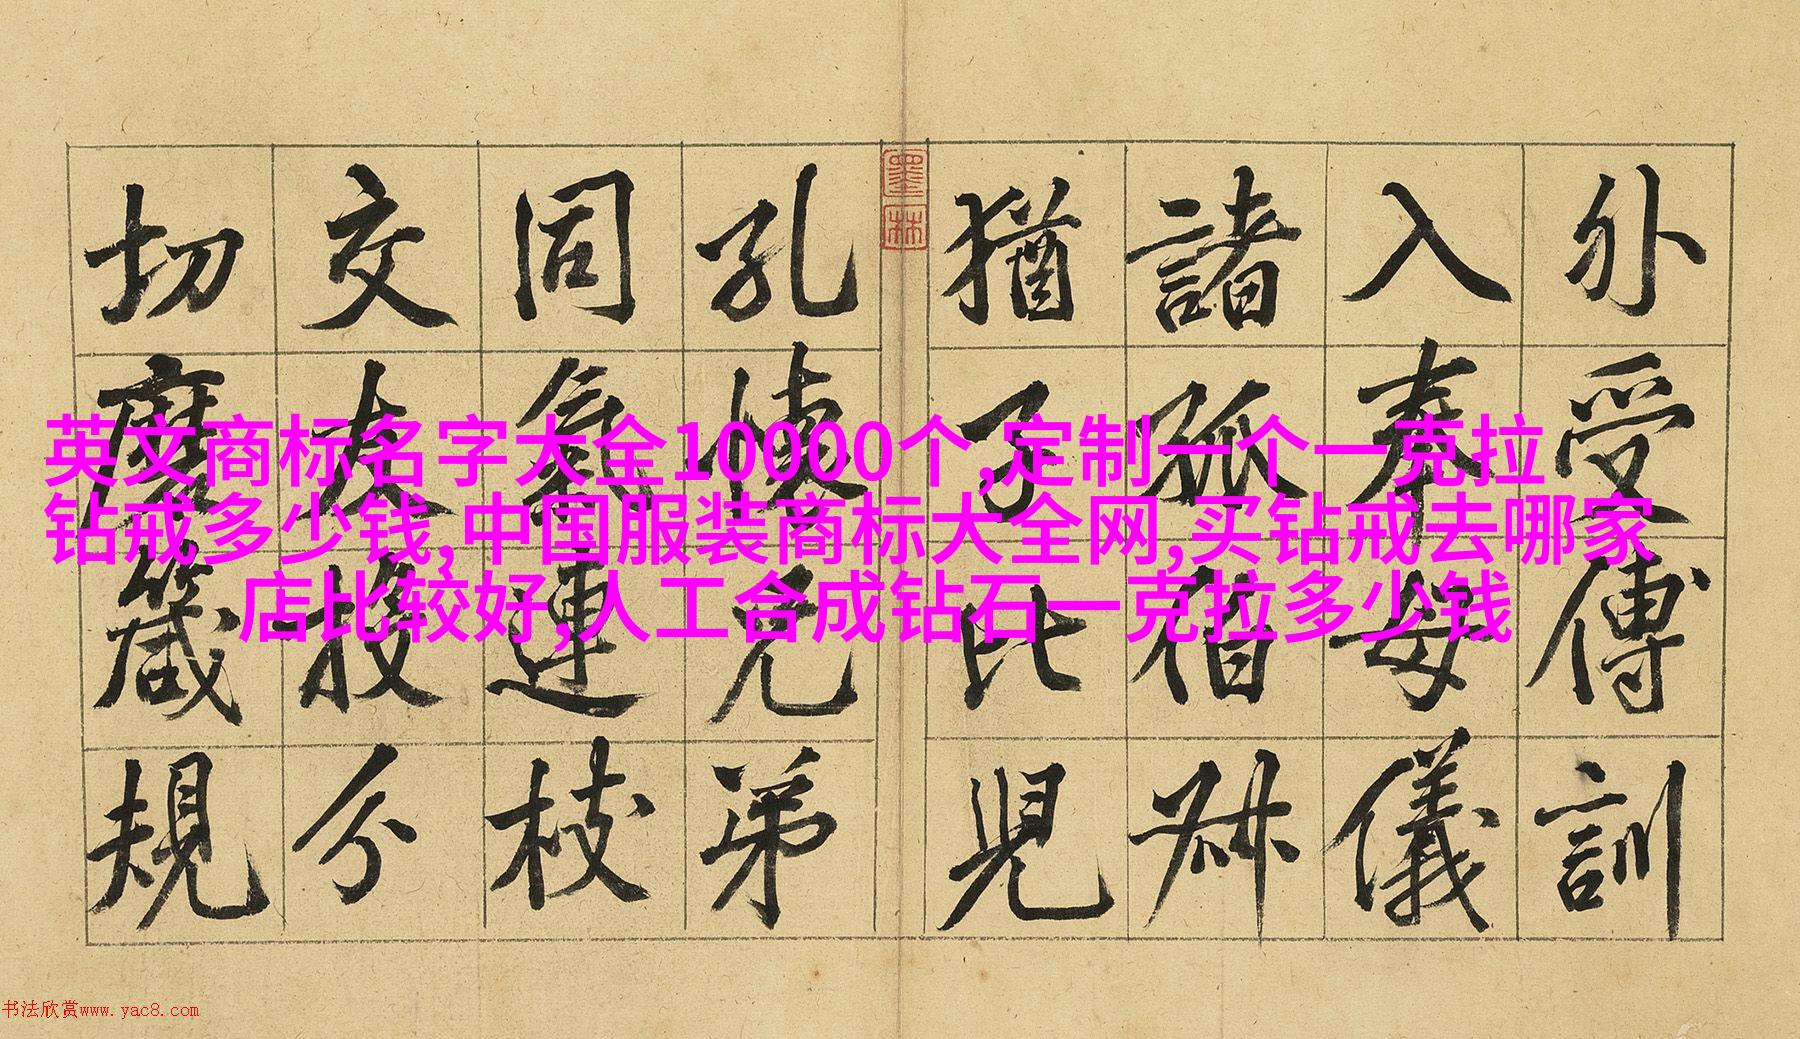 外受傅訓
入奉母儀
諸孤伯叔
猶子比兒
孔懷兄弟
同氣連枝
交友投分
切磨箴規
墨林
英文商标名字大全10000个,定制一个一克拉
钻戒多少钱,中国服装商标大全网,买钻戒去哪家
店比较好,人工合成钻石一克拉多少钱
书法欣赏www.yac8.com